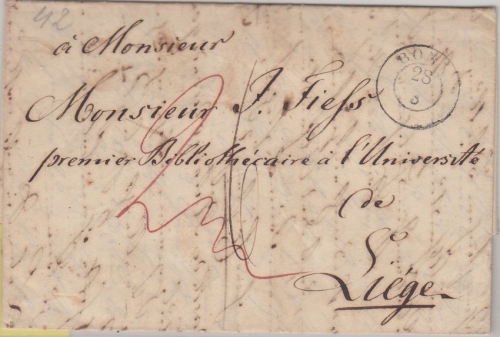 42
à Monsieur
Monsieur J. Fiess
premier Bibliothécaire à l'Université
de
Liége
BONN
28
3